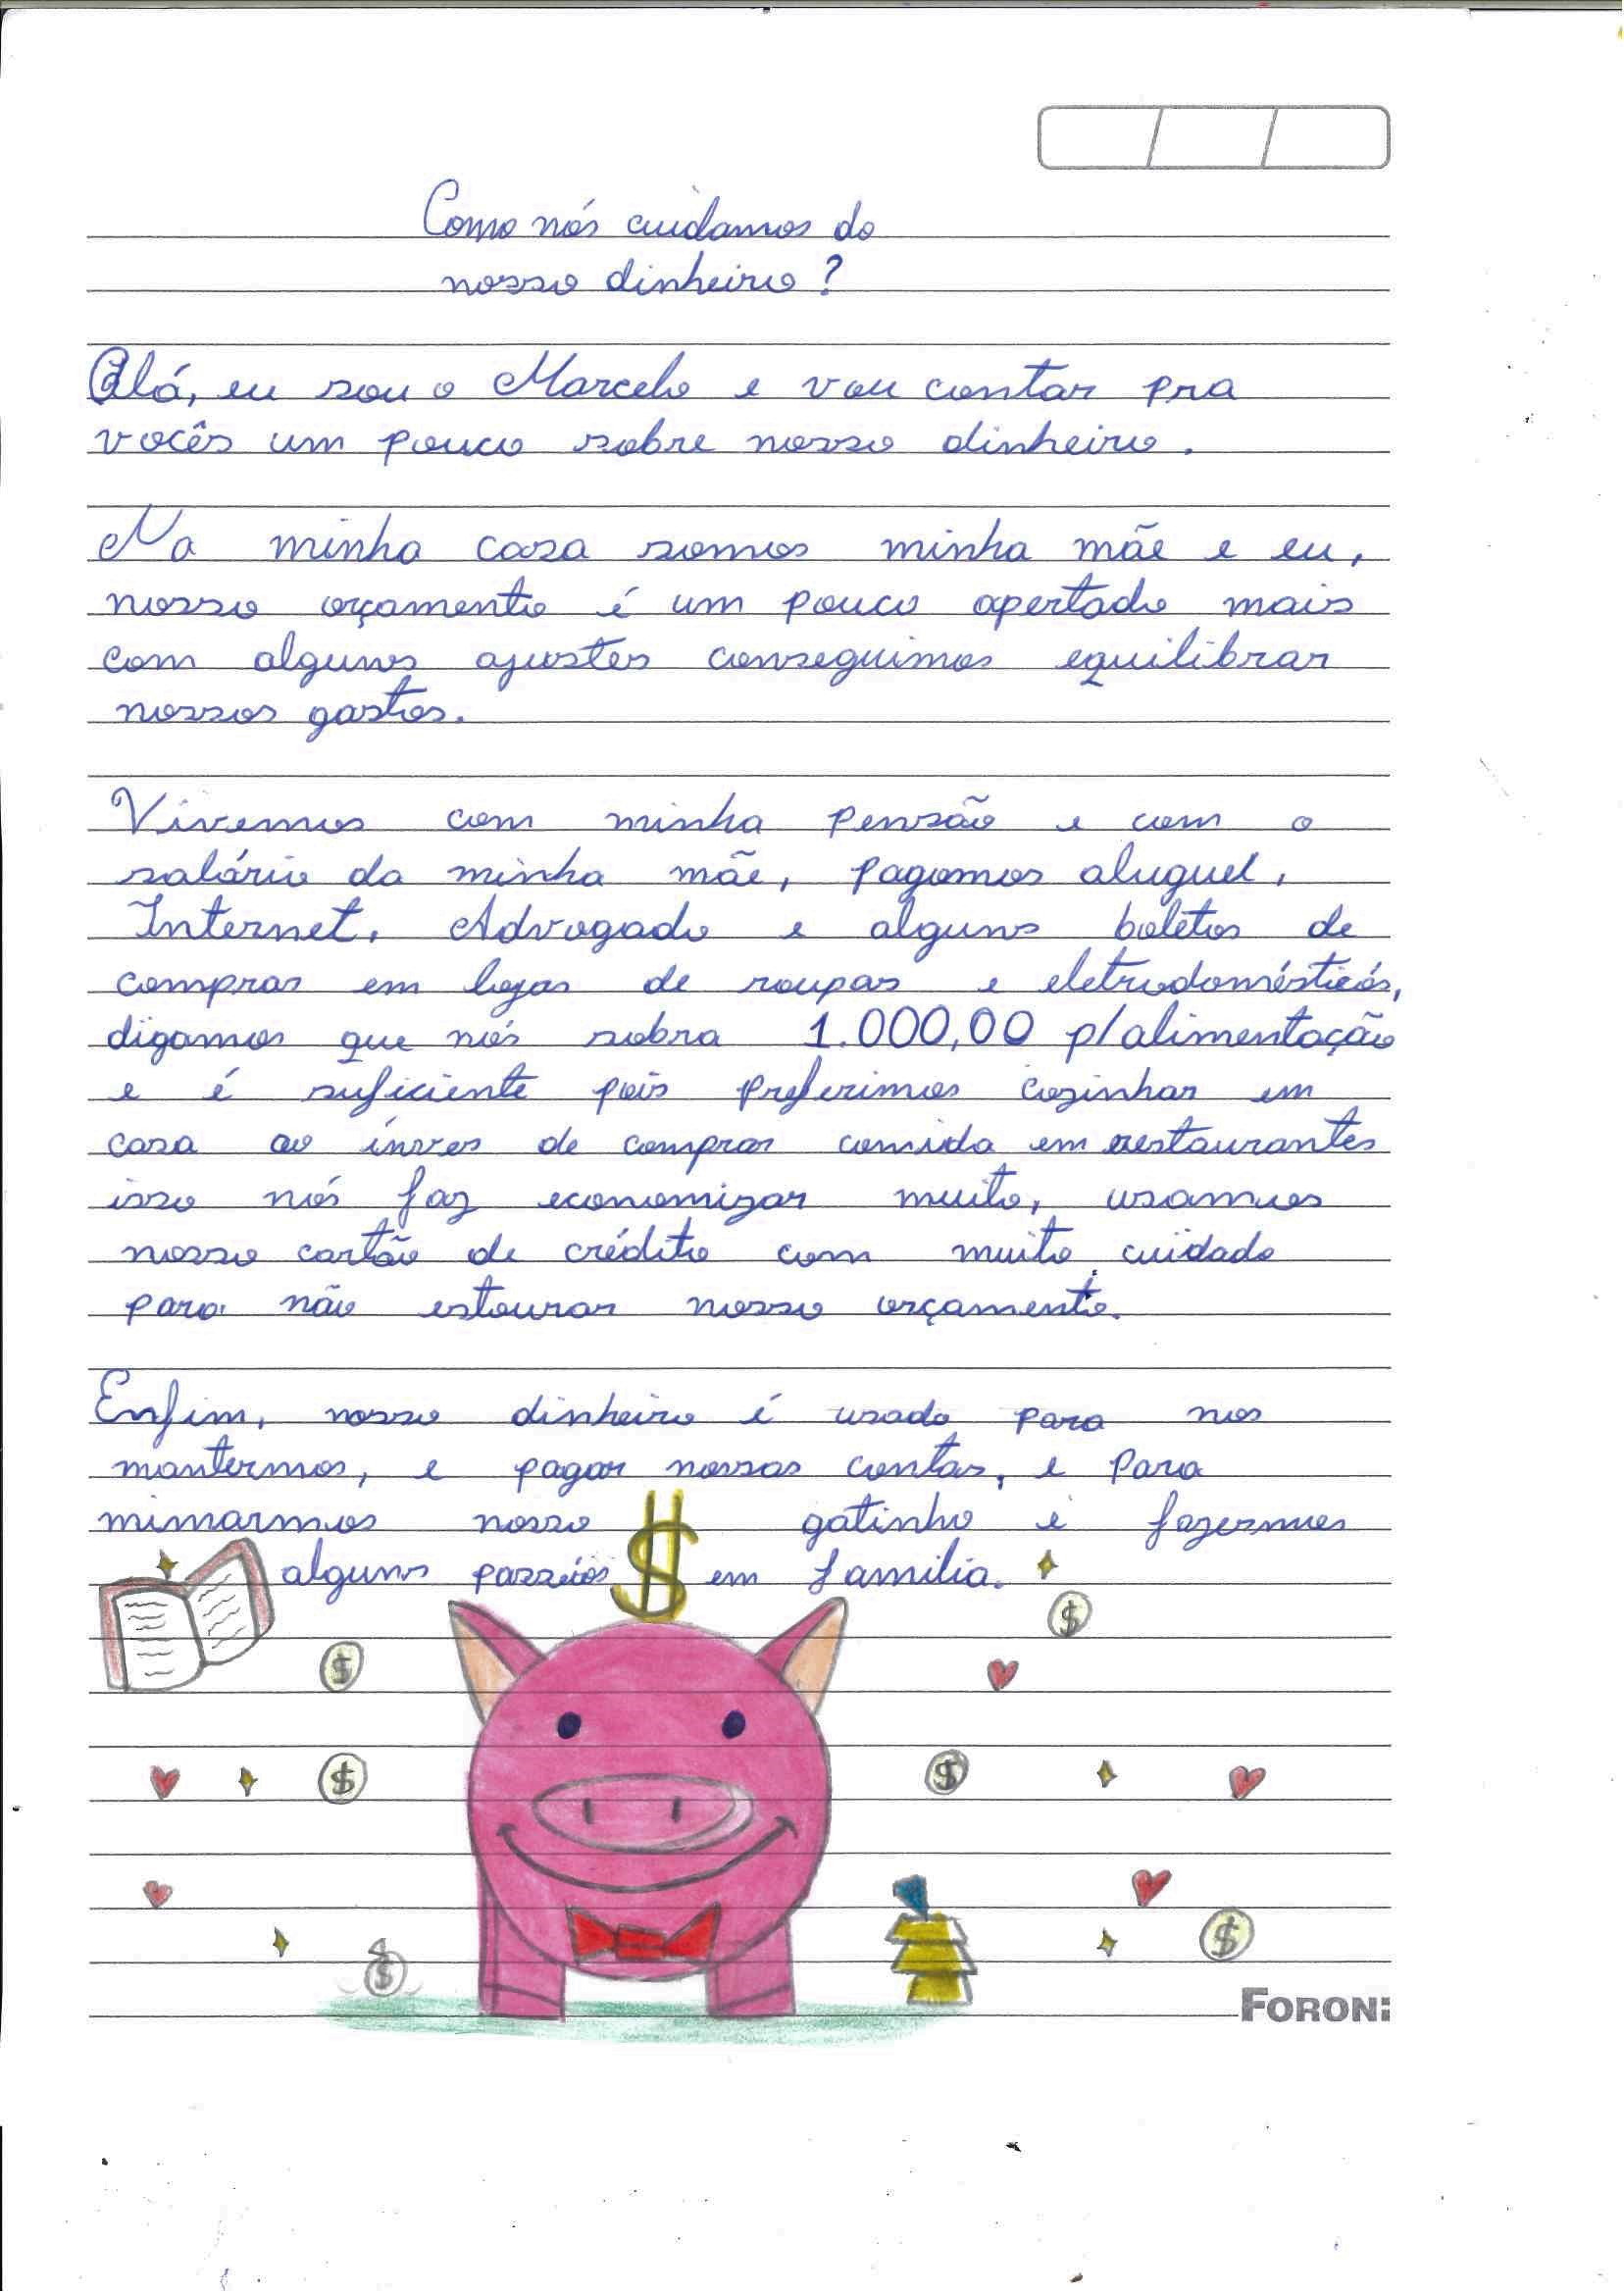 Como nós cuidamos do
nosso dinheiro?
Olá, eu sou o Marcelo e vou contar pra
vocês um pouco sobre nosso dinheiro.
Na minha casa somos minha mãe e eu,
nosso orçamento é um pouco apertado mais
com alguns ajustes conseguimos equilibrar
nossos gastos.
Vivemos com minha pensão e com o
salário da minha mãe, pagamos aluguel,
Internet, Advogado e alguns boletos de
compras em lojas de roupas e eletrodomésticós,
digamos que nós sobra 1.000,00 p/alimentação
e é suficiente pois preferimos cozinhar em
casa ao ínves de comprar comida em restaurantes
isso nós faz economizar muito, usamos
nosso cartão de crédito com muito cuidado
para não estourar nosso orçamento.
Enfim, nosso dinheiro é usado para nos
mantermos, e pagar nossas contas, e para
mimarmos nosso gatinho e fazermos
alguns passéios $ em familia.
$
$
$
$
$
$
FORONI